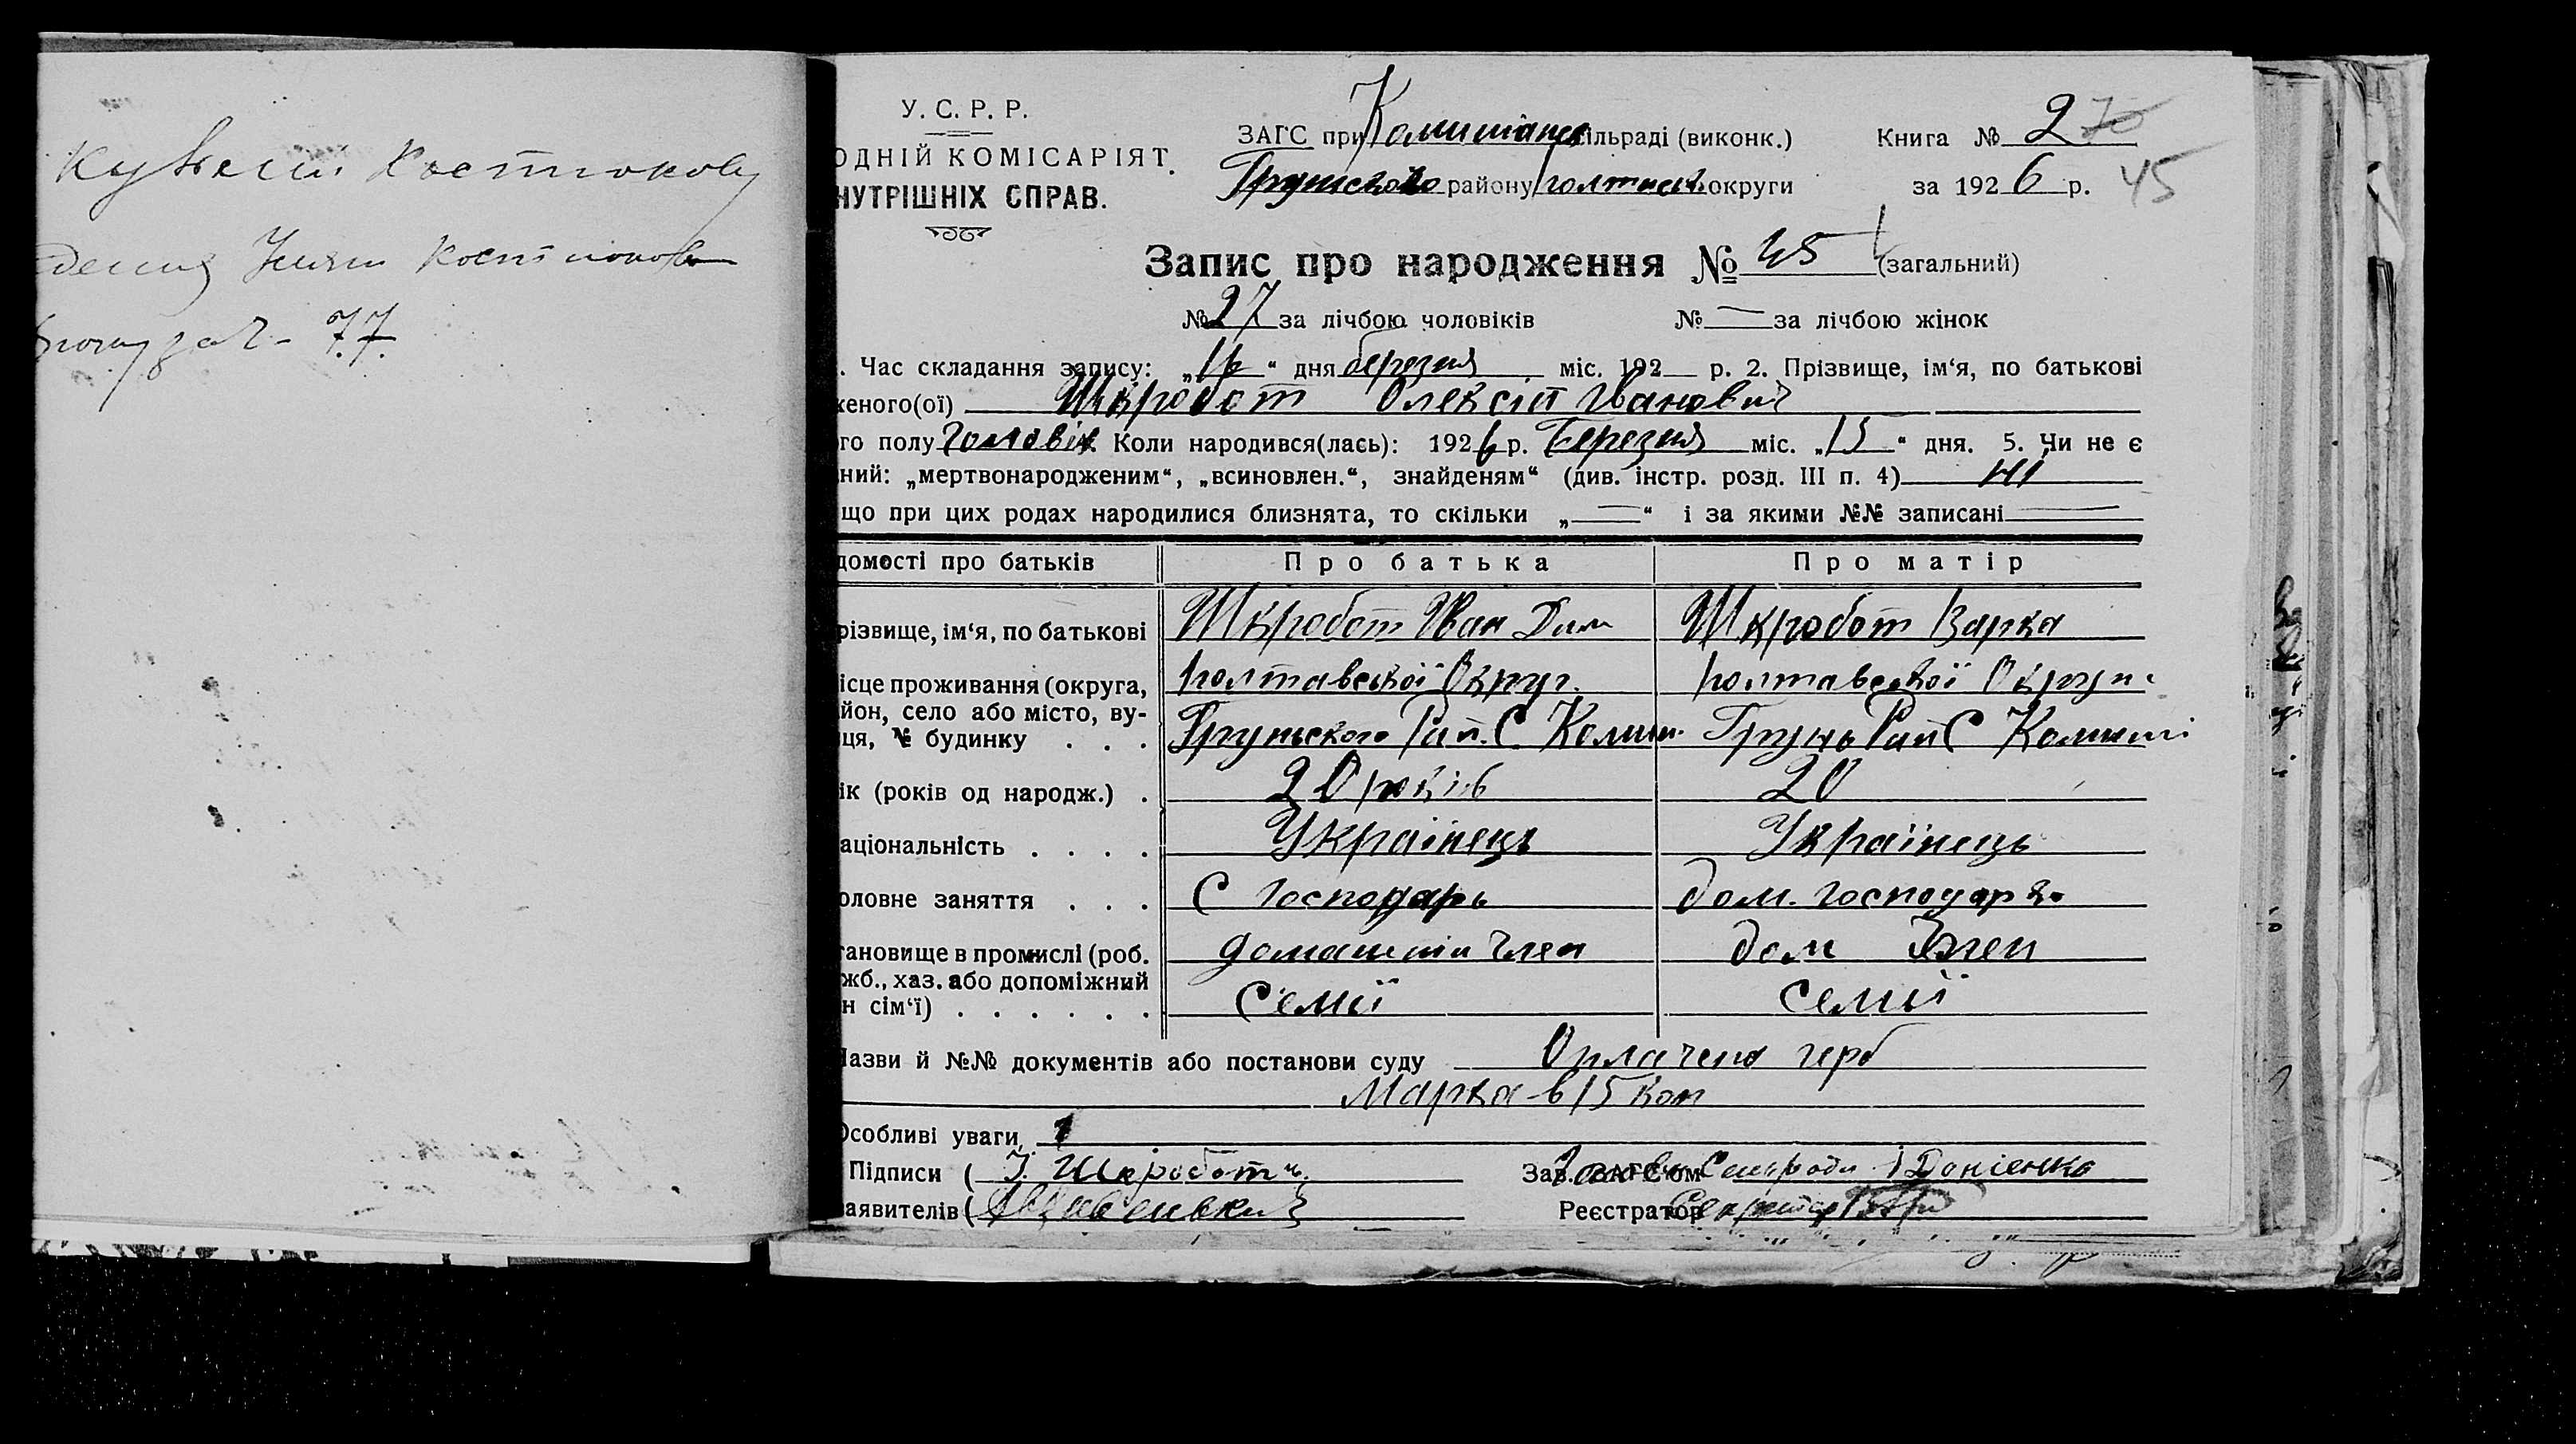 Костюкову
Костюкова
77
У. С. Р. Р.
ОДНІЙ КОМІСАРІЯТ.
НУТРІШНІХ СПРАВ.
ЗАГС при Комишанс ільраді (виконк.)
Грунсбкого району Полтавськ округи
Книга № 2 70
за 1926 р. 45
Запис про народження № 45 (загальний)
№ 27 за лічбою чоловіків № — за лічбою жінок
. Час складання запису: „16“ дня березня міс. 192 р. 2. Прізвище, ім‘я, по батькові
женого(ої) Шкробот Олексій Іванович
го полу Чоловік. Коли народився(лась): 1926 р. Березня міс. „15“ дня. 5. Чи не є
ний: „мертвонародженим“, „всиновлен.“, знайденям“ (див. інстр. розд. III п. 4) Ні
що при цих родах народилися близнята, то скільки „—“ і за якими №№ записані —
домості про батьків Про батька Про матір
різвище, ім‘я, по батькові Шкробот Іван Дем Шкробот Варка
ісце проживання (округа, Полтавської Округ. Полтавської Округи
йон, село або місто, ву-
ця, № будинку . . . Грунського Рай. С Комиш. Грунь Рай С Комиші
ік (років од народж.) . 20 років 20
аціональність . . . . Українець Українець
оловне заняття . . . С Господарь дом. господарь
тановище в промислі (роб. домашнін член дом член
жб., хаз. або допоміжний
н сім‘ї) . . . . . . Семії семії
Назви й №№ документів або постанови суду Оплачено герб
Марка в 15 коп
Особливі уваги
Підписи ( І. Шкробот Зав. ЗАГС‘ом Доніенко
аявителів ( Реєстратор Секретар